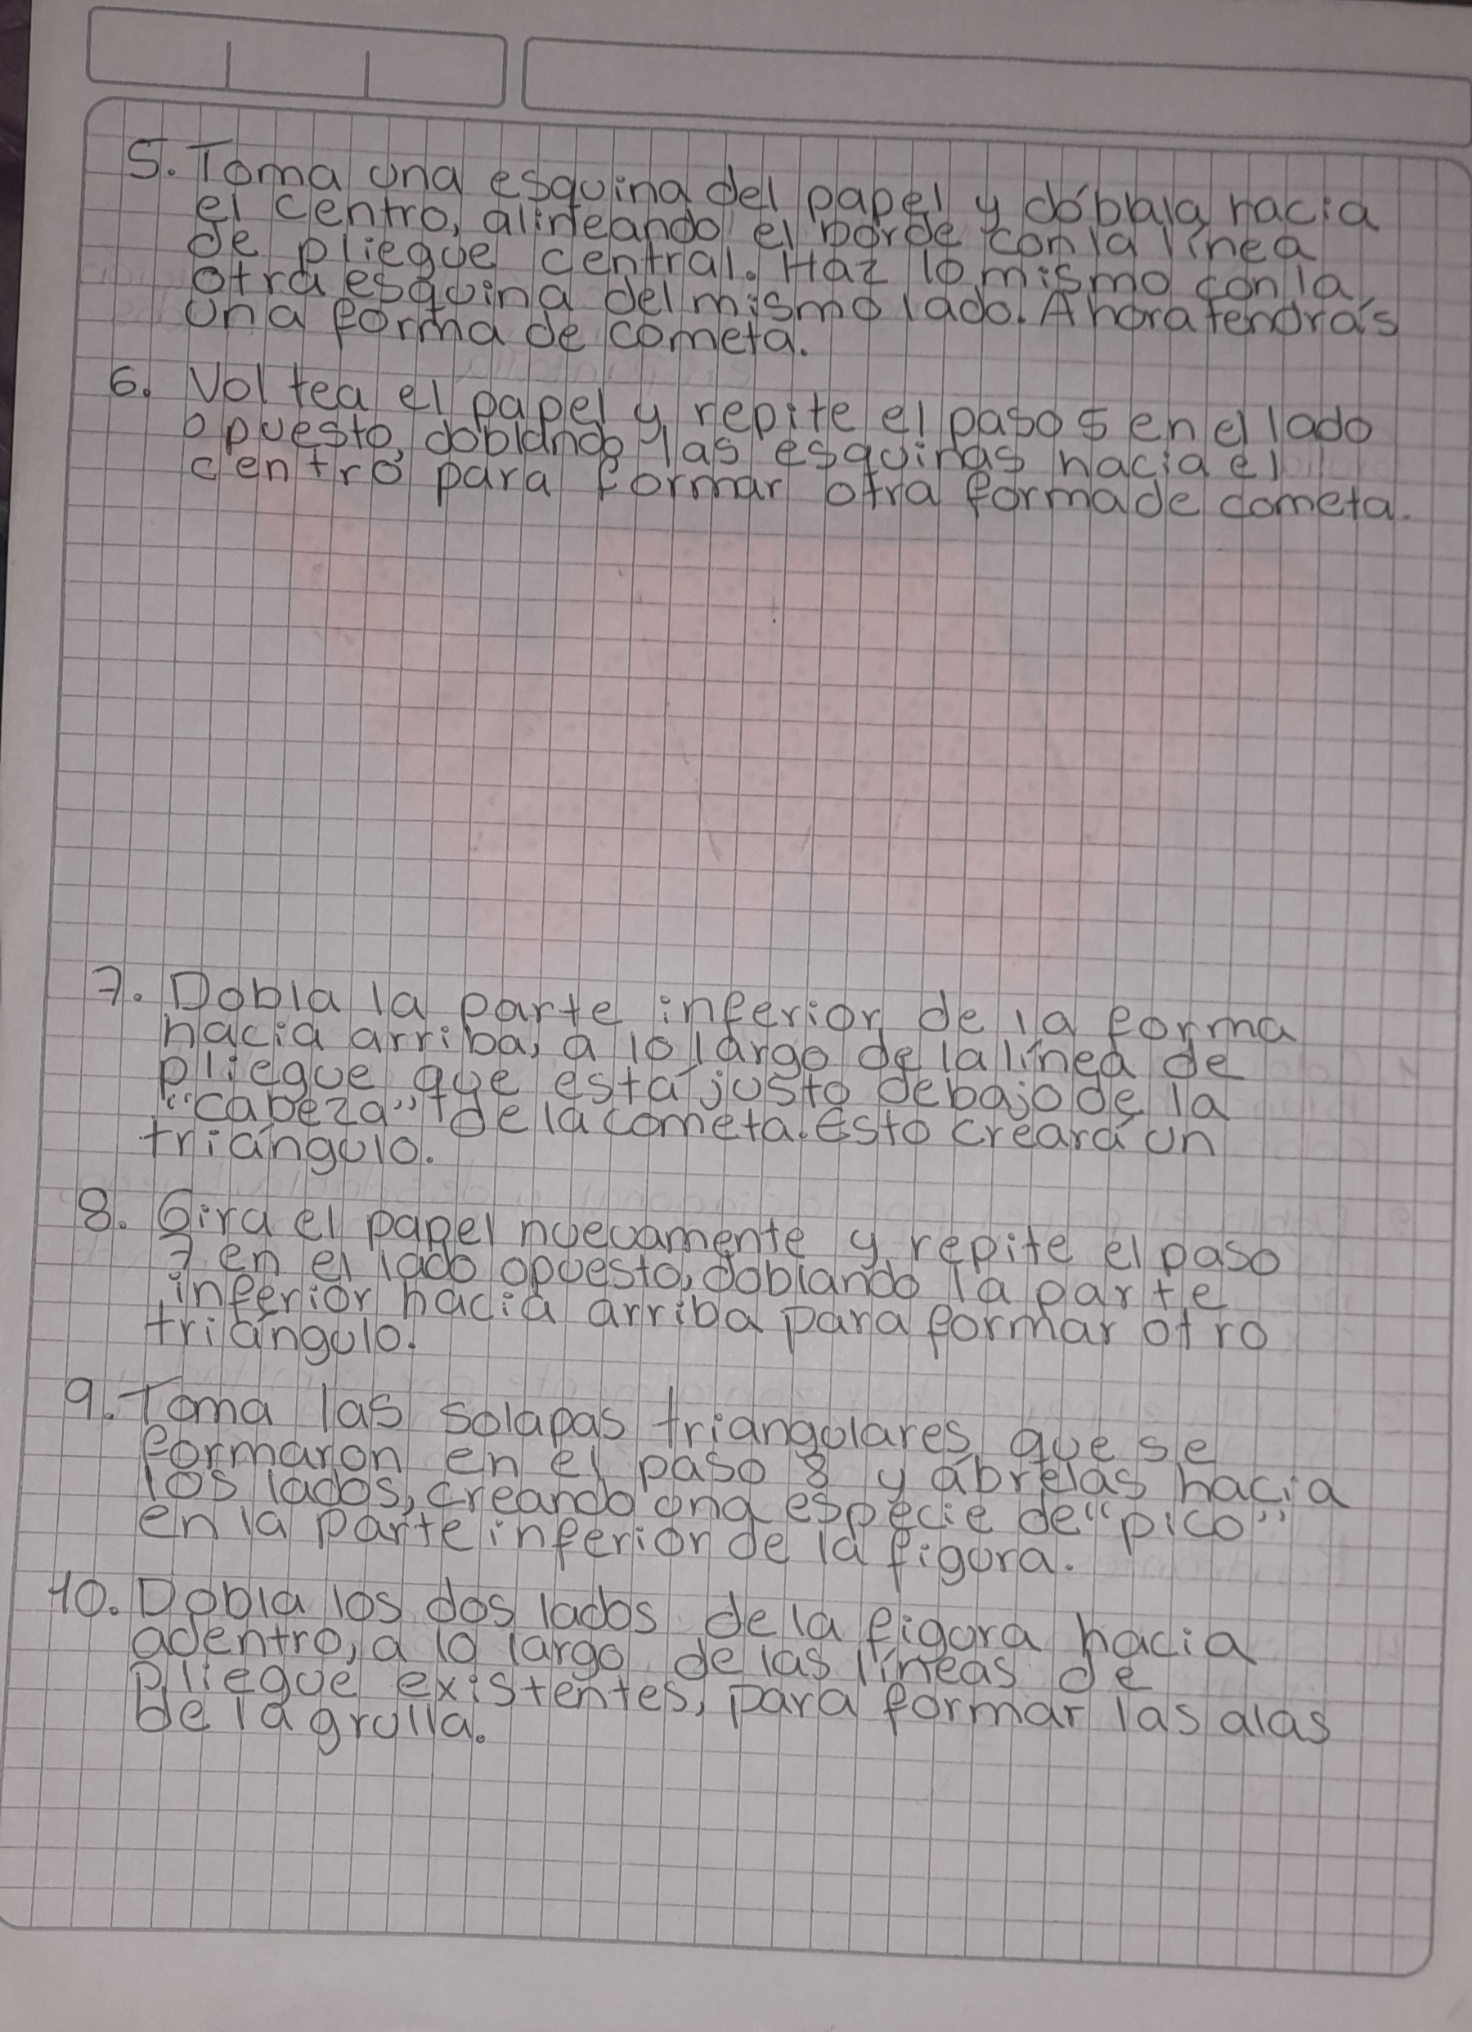 5. Toma una esquina del papel y dóblala hacia
el centro, alineando el borde con la línea
de pliegue central. Haz lo mismo con la
otra esquina del mismo lado. Ahora tendrás
una forma de cometa.
6. Voltea el papel y repite el paso 5 en el lado
opuesto, doblando las esquinas hacia el
centro para formar otra forma de cometa.
7. Dobla la parte inferior de la forma
hacia arriba, a lo largo de la línea de
pliegue que está justo debajo de la
"cabeza" de la cometa. Esto creará un
triángulo.
8. Gira el papel nuevamente y repite el paso
7 en el lado opuesto, doblando la parte
inferior hacia arriba para formar otro
triángulo.
9. Toma las solapas triangulares que se
formaron en el paso 8 y ábrelas hacia
los lados, creando una especie de "pico"
en la parte inferior de la figura.
10. Dobla los dos lados de la figura hacia
adentro, a lo largo de las líneas de
pliegue existentes, para formar las alas
de la grulla.